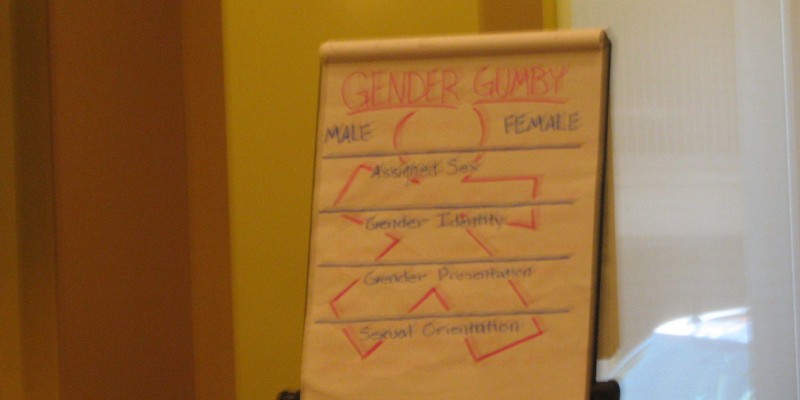 GENDER GUMBY
MALE FEMALE
Assigned Sex
Gender Identity
Gender Presentation
Sexual Orientation